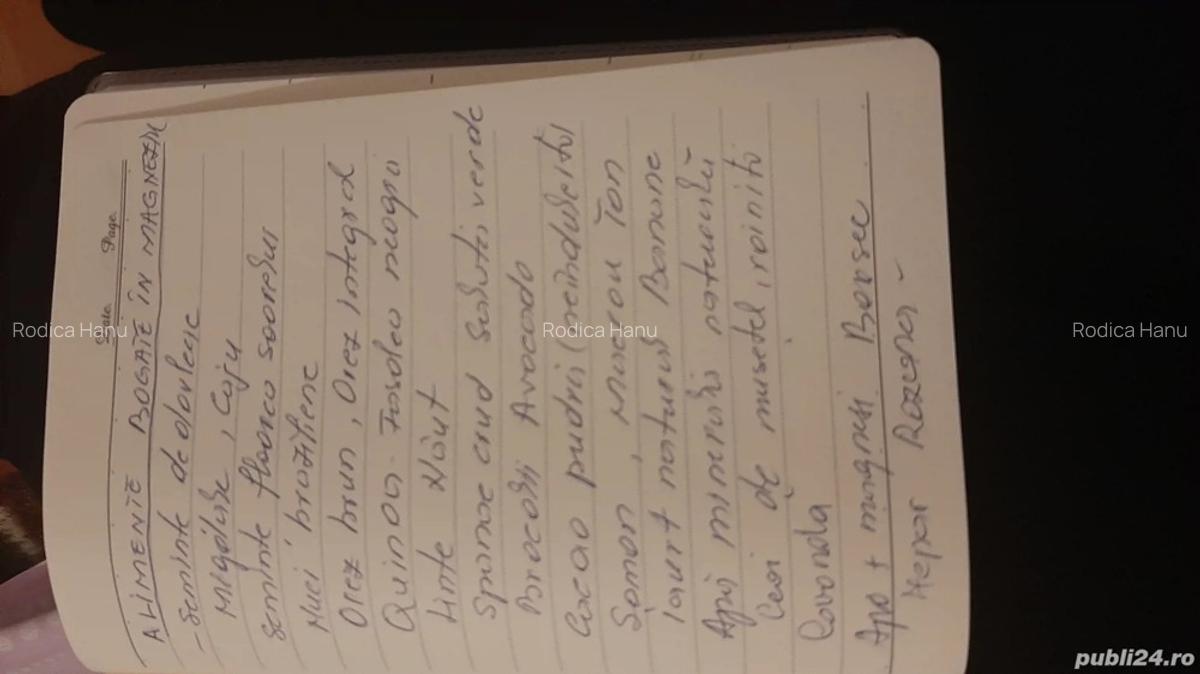 Date
Page
ALIMENTE BOGATE ÎN MAGNEZIU
- Seminte de dovleac
Migdale, Caju
Seminte floarea soarelui
Nuci braziliene
Orez brun, Orez integral
Quinoa. Fasolea neagra
Linte Năut
Spanac crud Salata verde
Brocolli Avocado
Cacao pudra (neindulcita)
Somon, Macrou Ton
Iaurt natural Banane
Apă minerală naturală
Ceai de musetel, roinita
Lavanda
Apa + magneziu Borsec
Hepar Rozana -
Rodica Hanu
Rodica Hanu
Rodica Hanu
publi24.ro